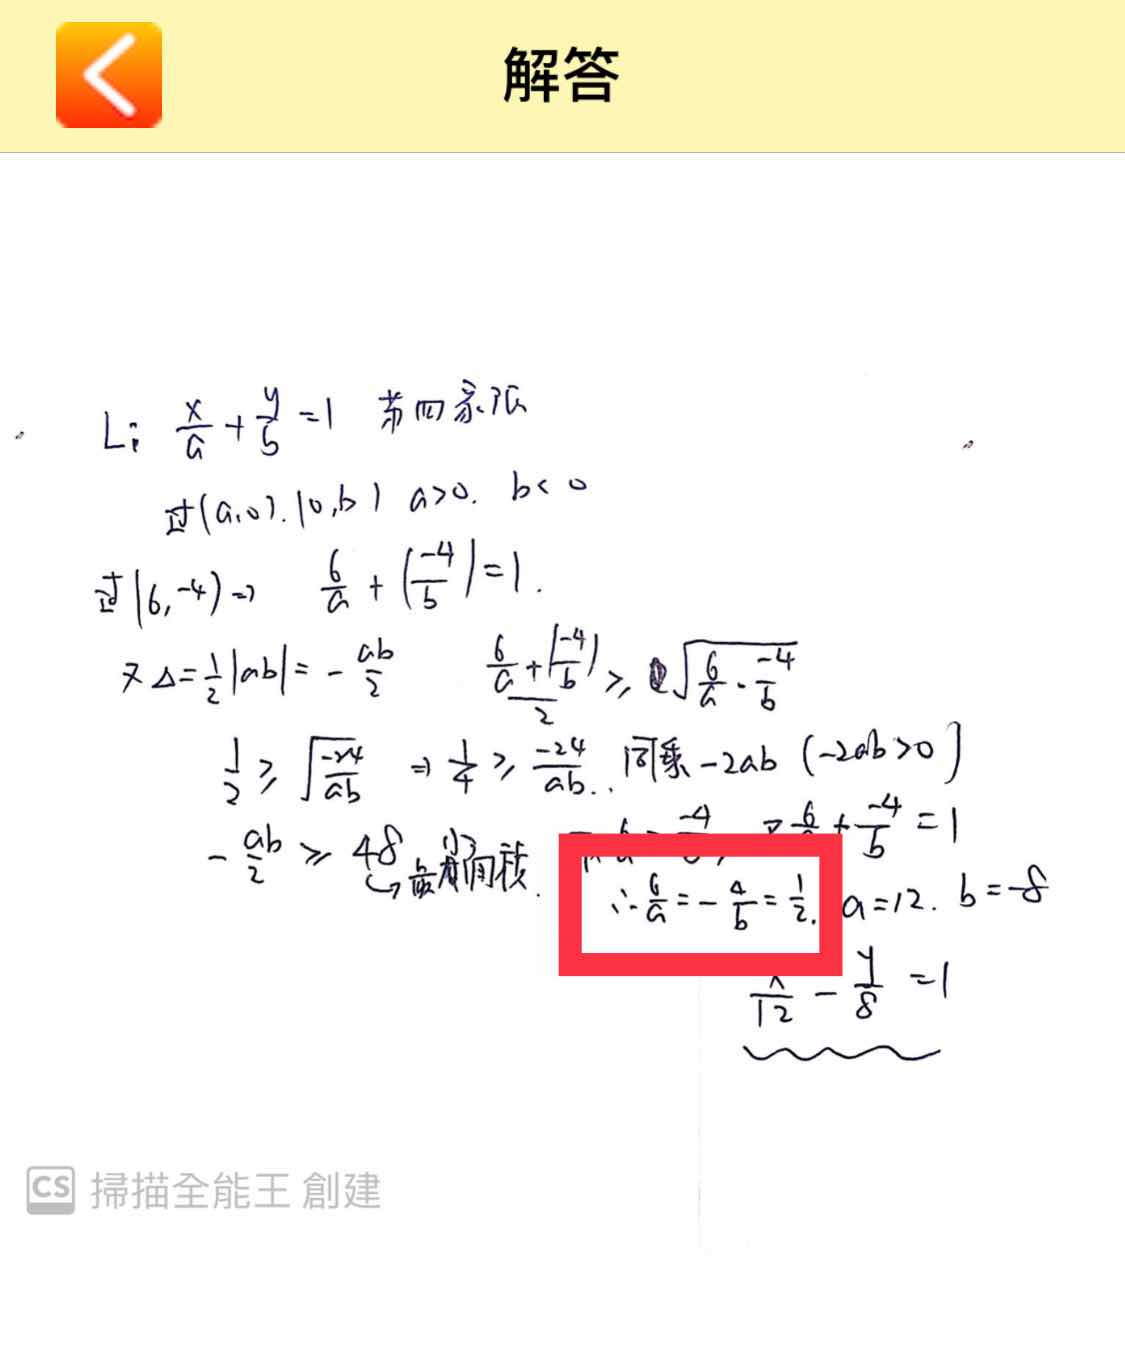 解答
L: x/a + y/b = 1 第四象限
过(a,0).(0,b) a>0. b<0
过(6,-4) ⇒ 6/a + (-4/b) = 1.
又 Δ = 1/2|ab| = - ab/2 (6/a + (-4/b))/2 ≥ √(6/a · -4/b)
1/2 ≥ √(-24/ab) ⇒ 1/4 ≥ -24/ab .. 同乘 -2ab (-2ab>0)
- ab/2 ≥ 48 6/a + -4/b = 1
↪ 最小面積.
∴ 6/a = - 4/b = 1/2. a=12. b=-8
x/12 - y/8 = 1
CS 掃描全能王 創建